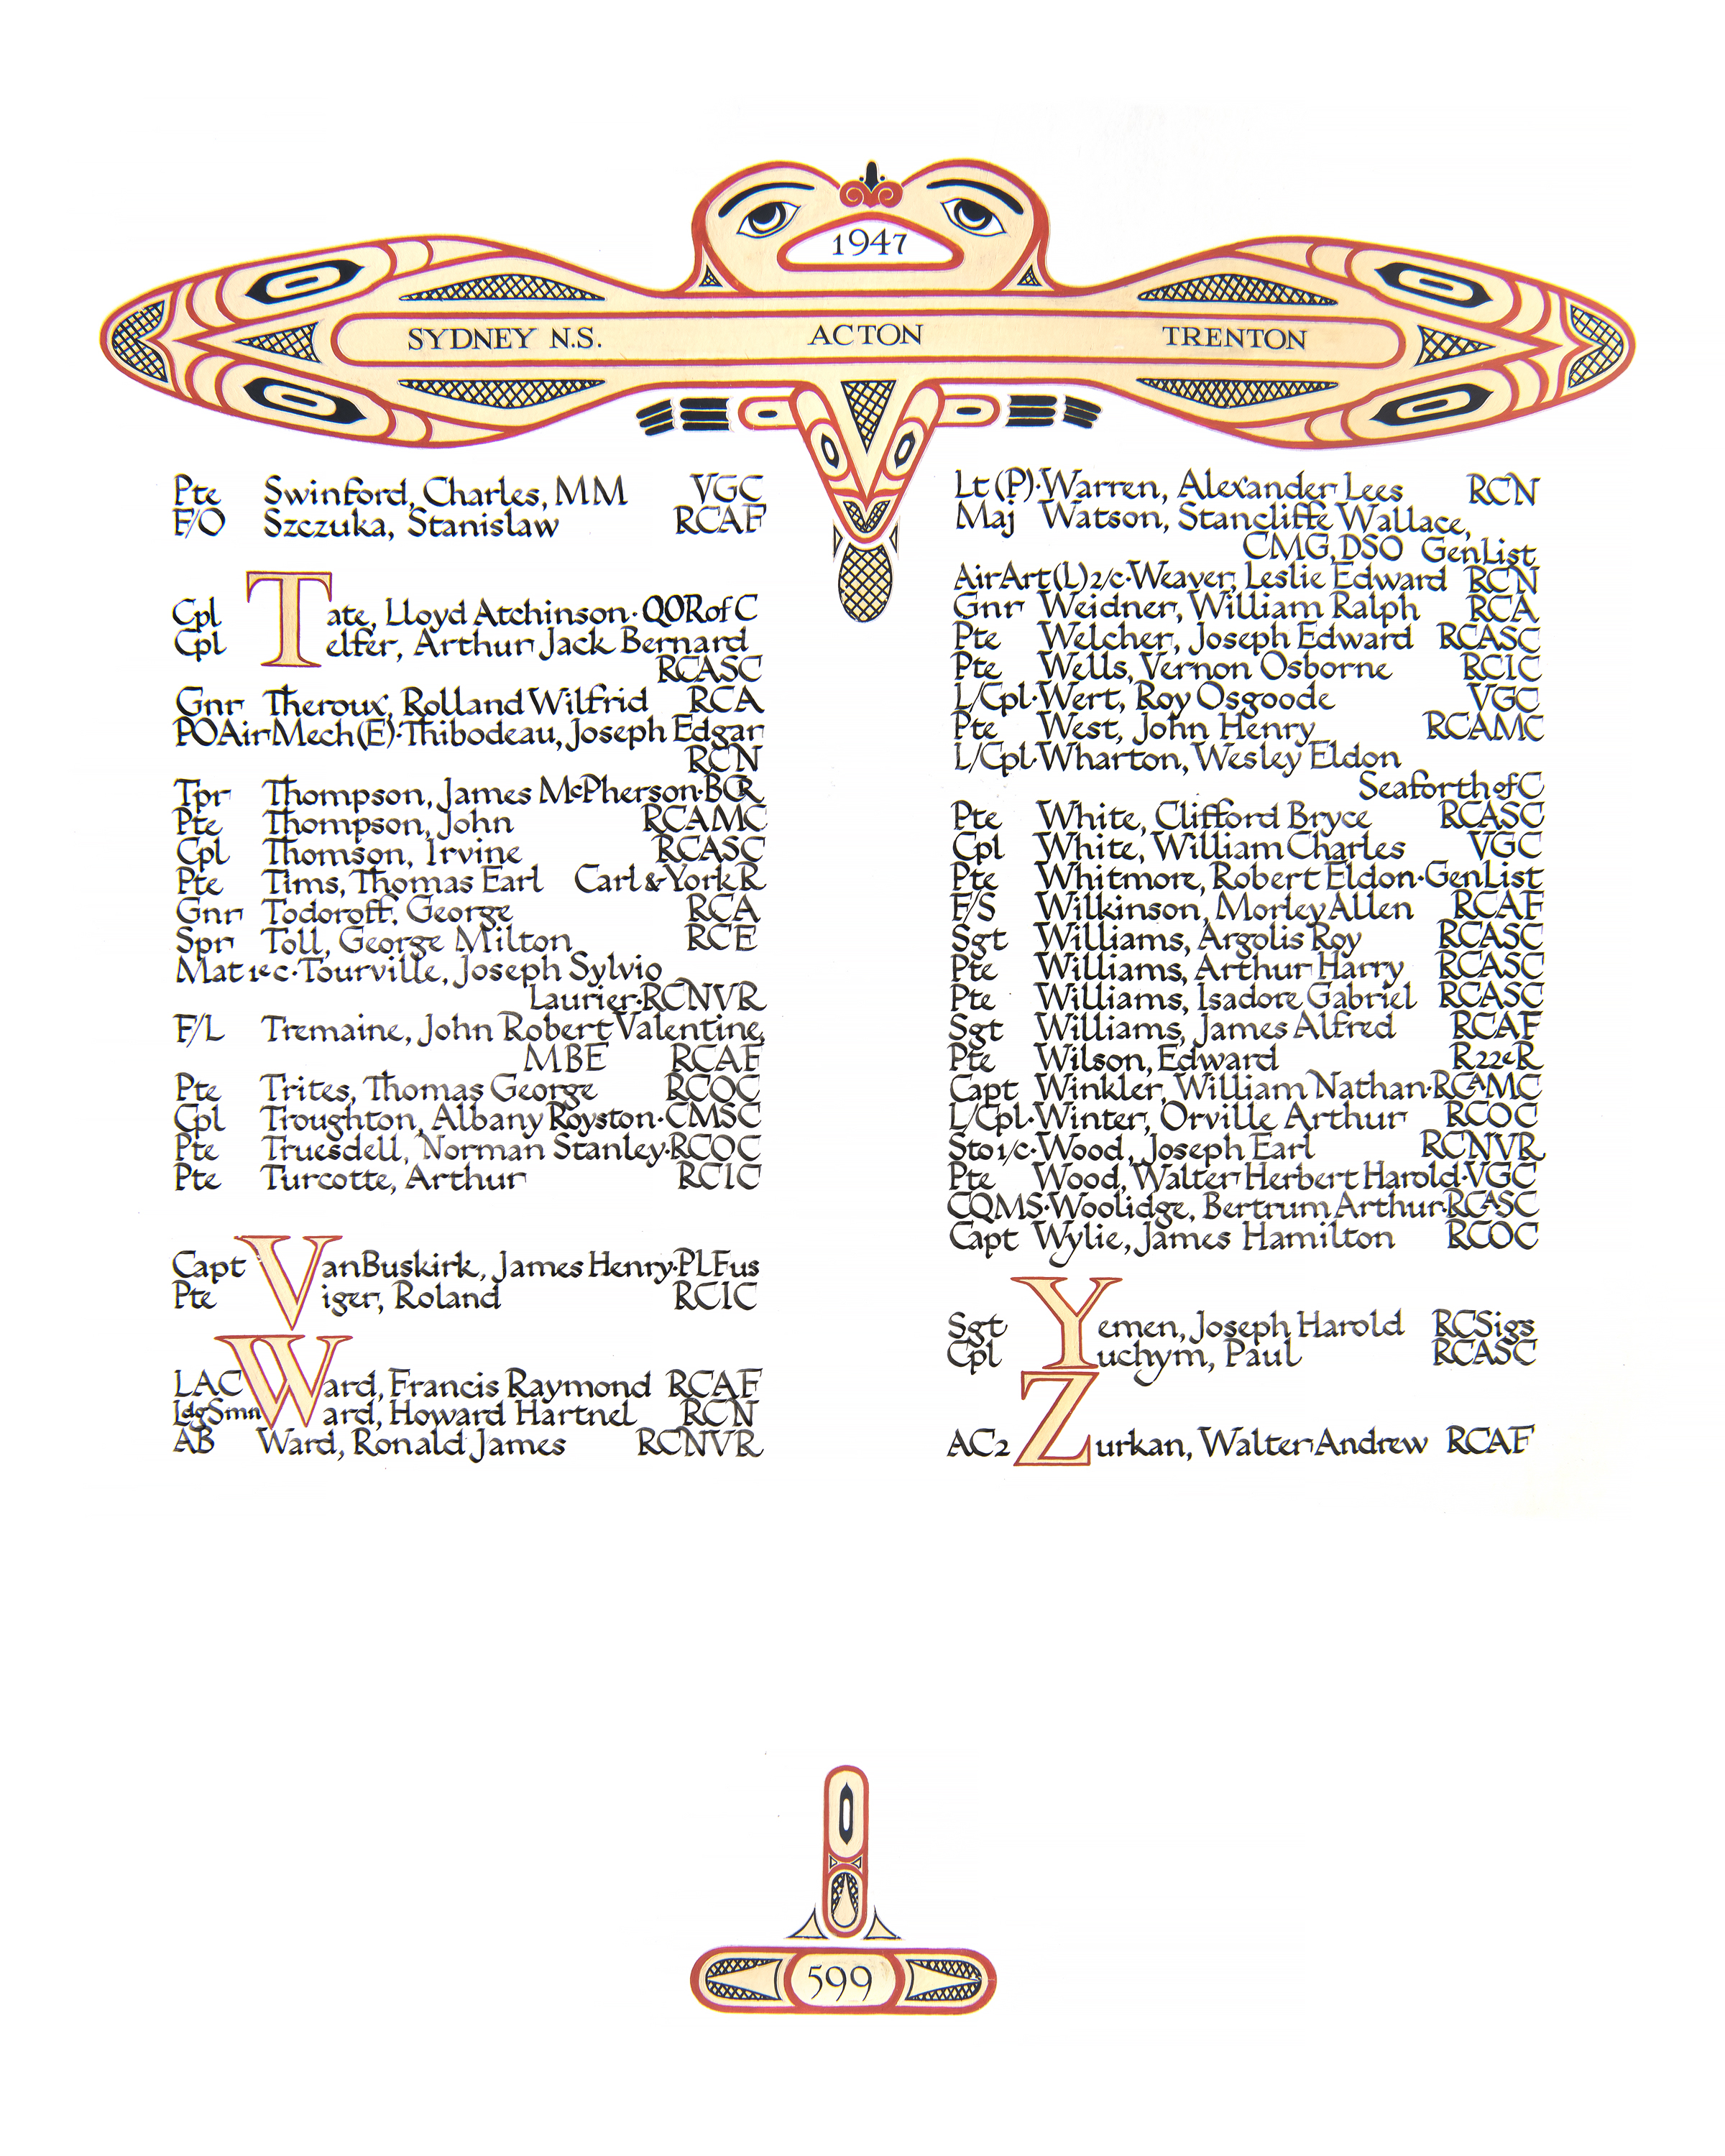 1947
SYDNEY N.S. ACTON TRENTON
Pte Swinford, Charles, MM VGC
F/O Szczuka, Stanislaw RCAF
Cpl Tate, Lloyd Atchinson·QORofC
Cpl Telfer, Arthur Jack Bernard
RCASC
Gnr Theroux, Rolland Wilfrid RCA
POAirMech(E)·Thibodeau, Joseph Edgar
RCN
Tpr Thompson, James McPherson·BCR
Pte Thompson, John RCAMC
Cpl Thomson, Irvine RCASC
Pte Tims, Thomas Earl Carl&YorkR
Gnr Todoroff, George RCA
Spr Toll, George Milton RCE
Mat 1e c·Tourville, Joseph Sylvio
Laurier·RCNVR
F/L Tremaine, John Robert Valentine,
MBE RCAF
Pte Trites, Thomas George RCOC
Cpl Troughton, Albany Royston·CMSC
Pte Truesdell, Norman Stanley·RCOC
Pte Turcotte, Arthur RCIC
Capt VanBuskirk, James Henry·PLFus
Pte Viger, Roland RCIC
LAC Ward, Francis Raymond RCAF
LdgSmn Ward, Howard Hartnel RCN
AB Ward, Ronald James RCNVR
Lt (P)·Warren, Alexander Lees RCN
Maj Watson, Stancliffe Wallace,
CMG, DSO GenList
AirArt(L)2/c·Weaver, Leslie Edward RCN
Gnr Weidner, William Ralph RCA
Pte Welcher, Joseph Edward RCASC
Pte Wells, Vernon Osborne RCIC
L/Cpl·Wert, Roy Osgoode VGC
Pte West, John Henry RCAMC
L/Cpl·Wharton, Wesley Eldon
SeaforthofC
Pte White, Clifford Bryce RCASC
Cpl White, William Charles VGC
Pte Whitmore, Robert Eldon·GenList
F/S Wilkinson, Morley Allen RCAF
Sgt Williams, Argolis Roy RCASC
Pte Williams, Arthur Harry RCASC
Pte Williams, Isadore Gabriel RCASC
Sgt Williams, James Alfred RCAF
Pte Wilson, Edward R22eR
Capt Winkler, William Nathan·RCAMC
L/Cpl·Winter, Orville Arthur RCOC
Sto1/c·Wood, Joseph Earl RCNVR
Pte Wood, Walter Herbert Harold·VGC
CQMS·Woolidge, Bertrum Arthur·RCASC
Capt Wylie, James Hamilton RCOC
Sgt Yemen, Joseph Harold RCSigs
Cpl Yuchym, Paul RCASC
AC2 Zurkan, Walter Andrew RCAF
599